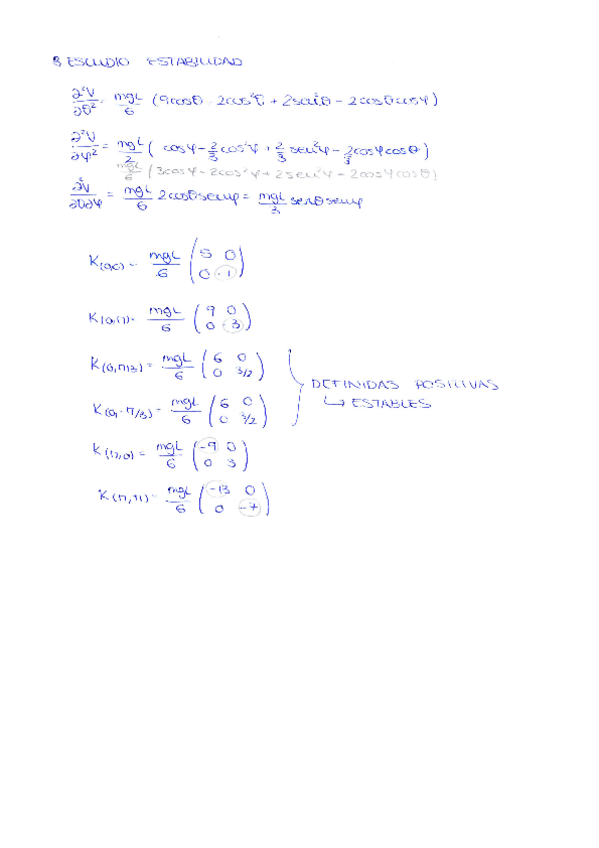 B ESTUDIO ESTABILIDAD
∂²V/∂θ² = mgL/6 (9cosθ - 2cos²θ + 2sen²θ - 2cosθcosφ)
∂²V/∂φ² = mgL/2 (cosφ - 2/3 cos²φ + 2/3 sen²φ - 2/3 cosφcosθ)
mgL/6 (3cosφ - 2cos²φ + 2sen²φ - 2cosφcosθ)
∂²V/∂θ∂φ = mgL/6 2senθsenφ = mgL/3 senθsenφ
K(0,0) = mgL/6 (5 0
0 -1)
K(0,π) = mgL/6 (9 0
0 -3)
K(0,π/3) = mgL/6 (6 0
0 3/2)
DEFINIDAS POSITIVAS
↳ ESTABLES
K(0,-π/3) = mgL/6 (6 0
0 3/2)
K(π,0) = mgL/6 (-9 0
0 3)
K(π,π) = mgL/6 (-13 0
0 -7)